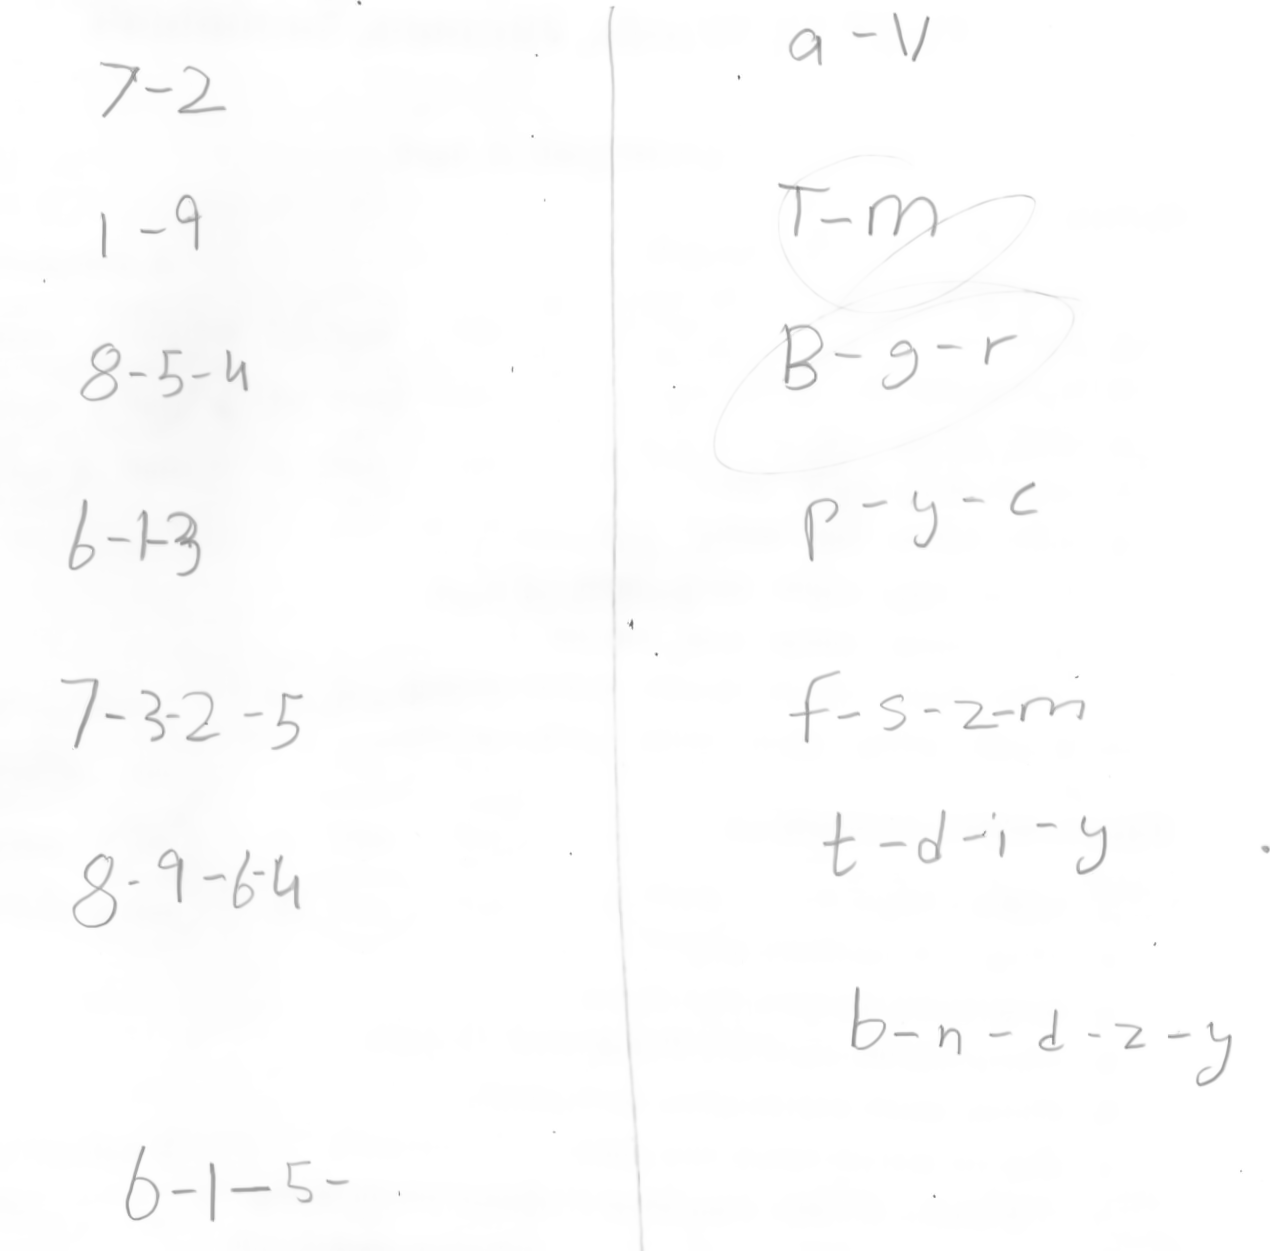 7-2
1-9
8-5-4
6-1-3
7-3-2-5
8-9-6-4
6-1-5-
a-V
T-m
B-g-r
p-y-c
f-s-z-m
t-d-i-y
b-n-d-z-y